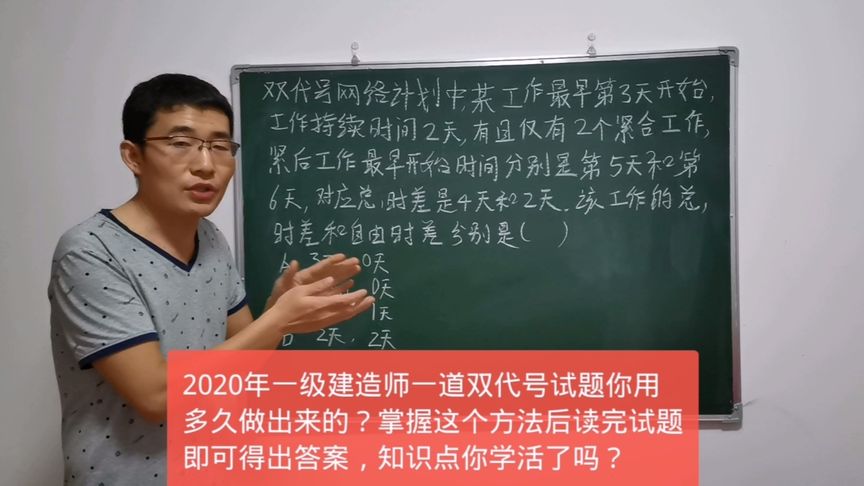 双代号网络计划中,某工作最早第3天开始,
工作持续时间2天,有且仅有2个紧合工作,
紧后工作最早开始时间分别是第5天和第
6天,对应总时差是4天和2天.该工作的总,
时差和自由时差分别是( )
A 0天
0天
1天
D 2天. 2天
2020年一级建造师一道双代号试题你用
多久做出来的？掌握这个方法后读完试题
即可得出答案，知识点你学活了吗？